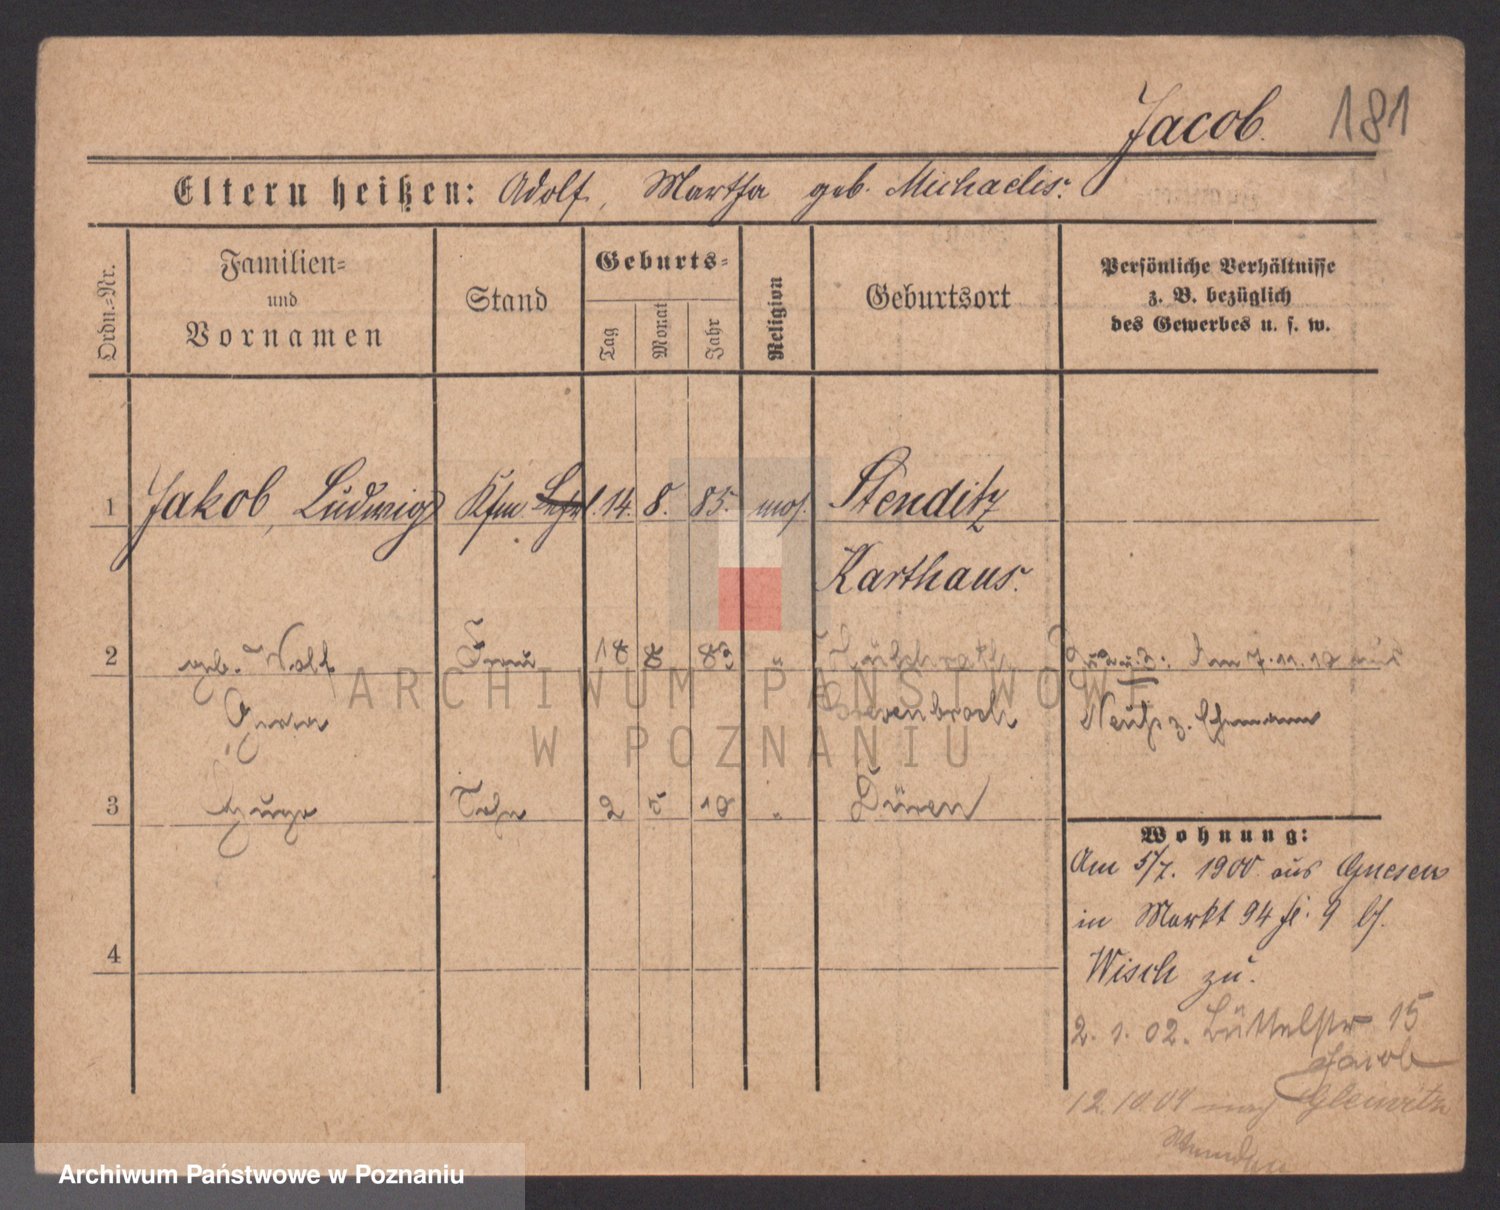 Jacob. 181
Eltern heißen: Adolf, Martha geb. Michaelis.
Ordn.-Nr.
Familien-
und
Vornamen
Stand
Geburts-
Tag
Monat
Jahr
Religion
Geburtsort
Persönliche Verhältnisse
z. B. bezüglich
des Gewerbes u. s. w.
1 Jakob, Ludwig Kfm. Lehrl. 14. 8. 85. mos. Stenditz
Karthaus.
2 geb. Wolf Frau 18 8 83 Am 7.11.18 aus
Anna Grevenbroich Neuß z. Ehemann
3 Sohn 2 5 18 " Düren
4
Wohnung:
Am 5/7. 1900 aus Gnesen
in Markt 94 bei
Wisch zu.
2. 1. 02. Büttelstr 15
Jacob
12.10.04 nach Gleiwitz
ARCHIWUM PAŃSTWOWE
W POZNANIU
Archiwum Państwowe w Poznaniu